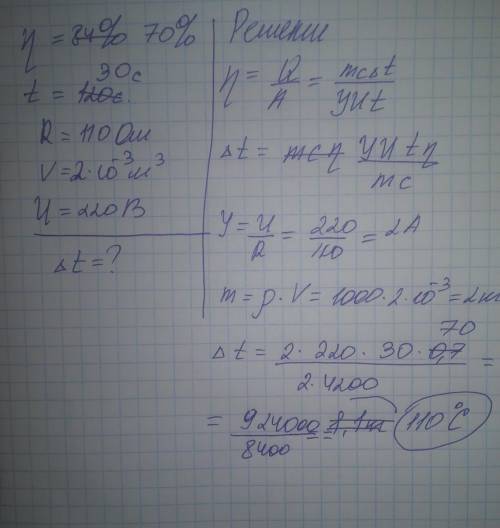 η = 84% 70%
30с
t = 120с.
R = 110 Ом
V = 2·10⁻³ м³
U = 220 В
Δt = ?
Решение
η = Q/A = mcΔt/УUt
Δt = mcη УUtη/mc
У = U/R = 220/110 = 2А
m = ρ·V = 1000·2·10⁻³ = 2кг
70
Δt = 2·220·30·0,7/2·4200 =
= 924000/8400 = 110°C